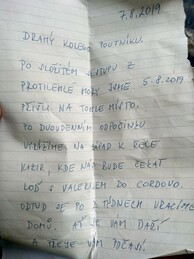 7.8.2019
DRAHÝ KOLEGO POUTNÍKU.
PO SLOŽITÉM SESTUPU Z
PROTILEHLÉ HORY JSME 5.8.2019
PŘIŠLI NA TOHLE MÍSTO.
PO DVOUDENNÍM ODPOČINKU
VYRÁŽÍME NA K ŘECE
KDE NÁS BUDE ČEKAT
LOĎ S DO CORDOVO.
ODTUD SE PO 2 TÝDNECH VRACÍME
DOMŮ. AŤ SE VÁM DAŘÍ
A VÁM POČASÍ